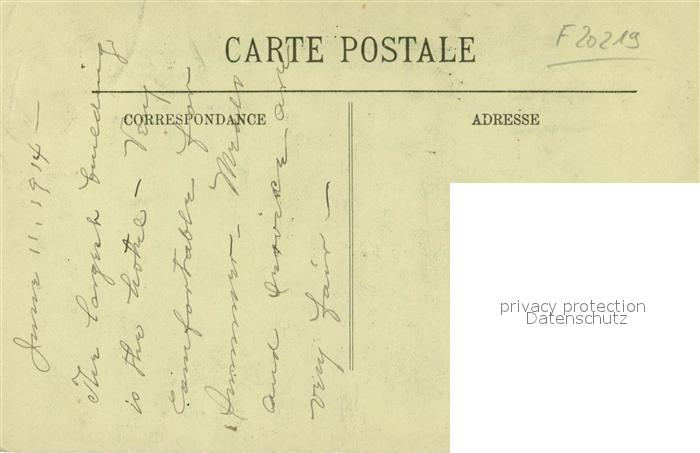 CARTE POSTALE
F 20219
CORRESPONDANCE
ADRESSE
June 11, 1914 —
The largest building
is the hotel — Very
comfortable for
Summer — Meals
and service are
very fair —
privacy protection
Datenschutz